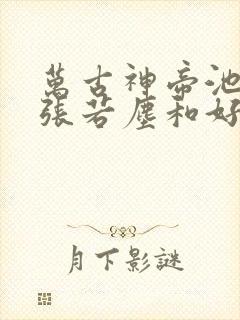 萬古神帝池
張若塵和好
月下影謎